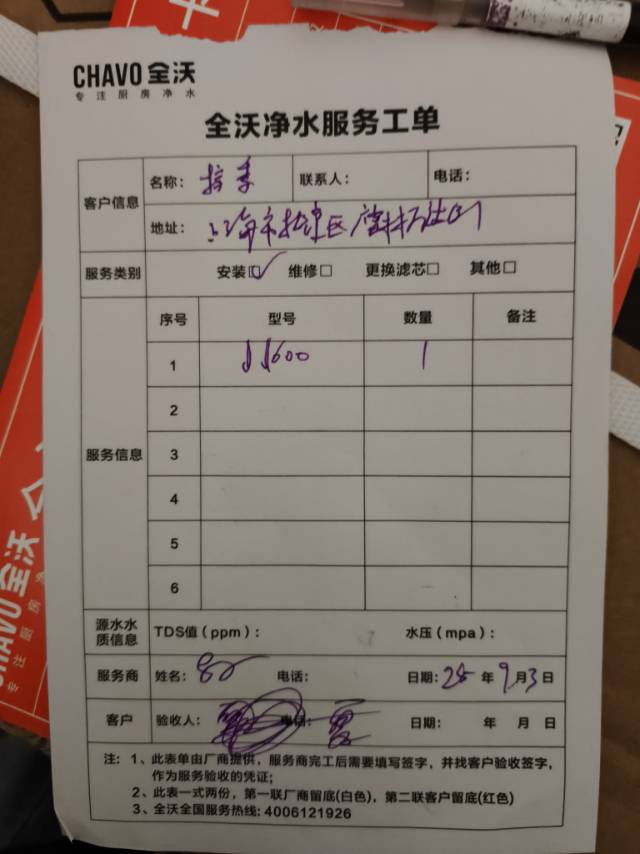 CHAVO 全沃
专注厨房净水
全沃净水服务工单
客户信息
名称:
联系人:
电话:
地址: 上海市
服务类别
安装☑ 维修□ 更换滤芯□ 其他□
服务信息
序号 型号 数量 备注
1 JJ600 1
2
3
4
5
6
源水水质信息
TDS值(ppm):
水压(mpa):
服务商
姓名:
电话:
日期: 25 年 9 月 3 日
客户
验收人:
电话:
日期: 年 月 日
注: 1、此表单由厂商提供，服务商完工后需要填写签字，并找客户验收签字，
作为服务验收的凭证;
2、此表一式两份，第一联厂商留底(白色)，第二联客户留底(红色)
3、全沃全国服务热线: 4006121926
CHAVO 全沃